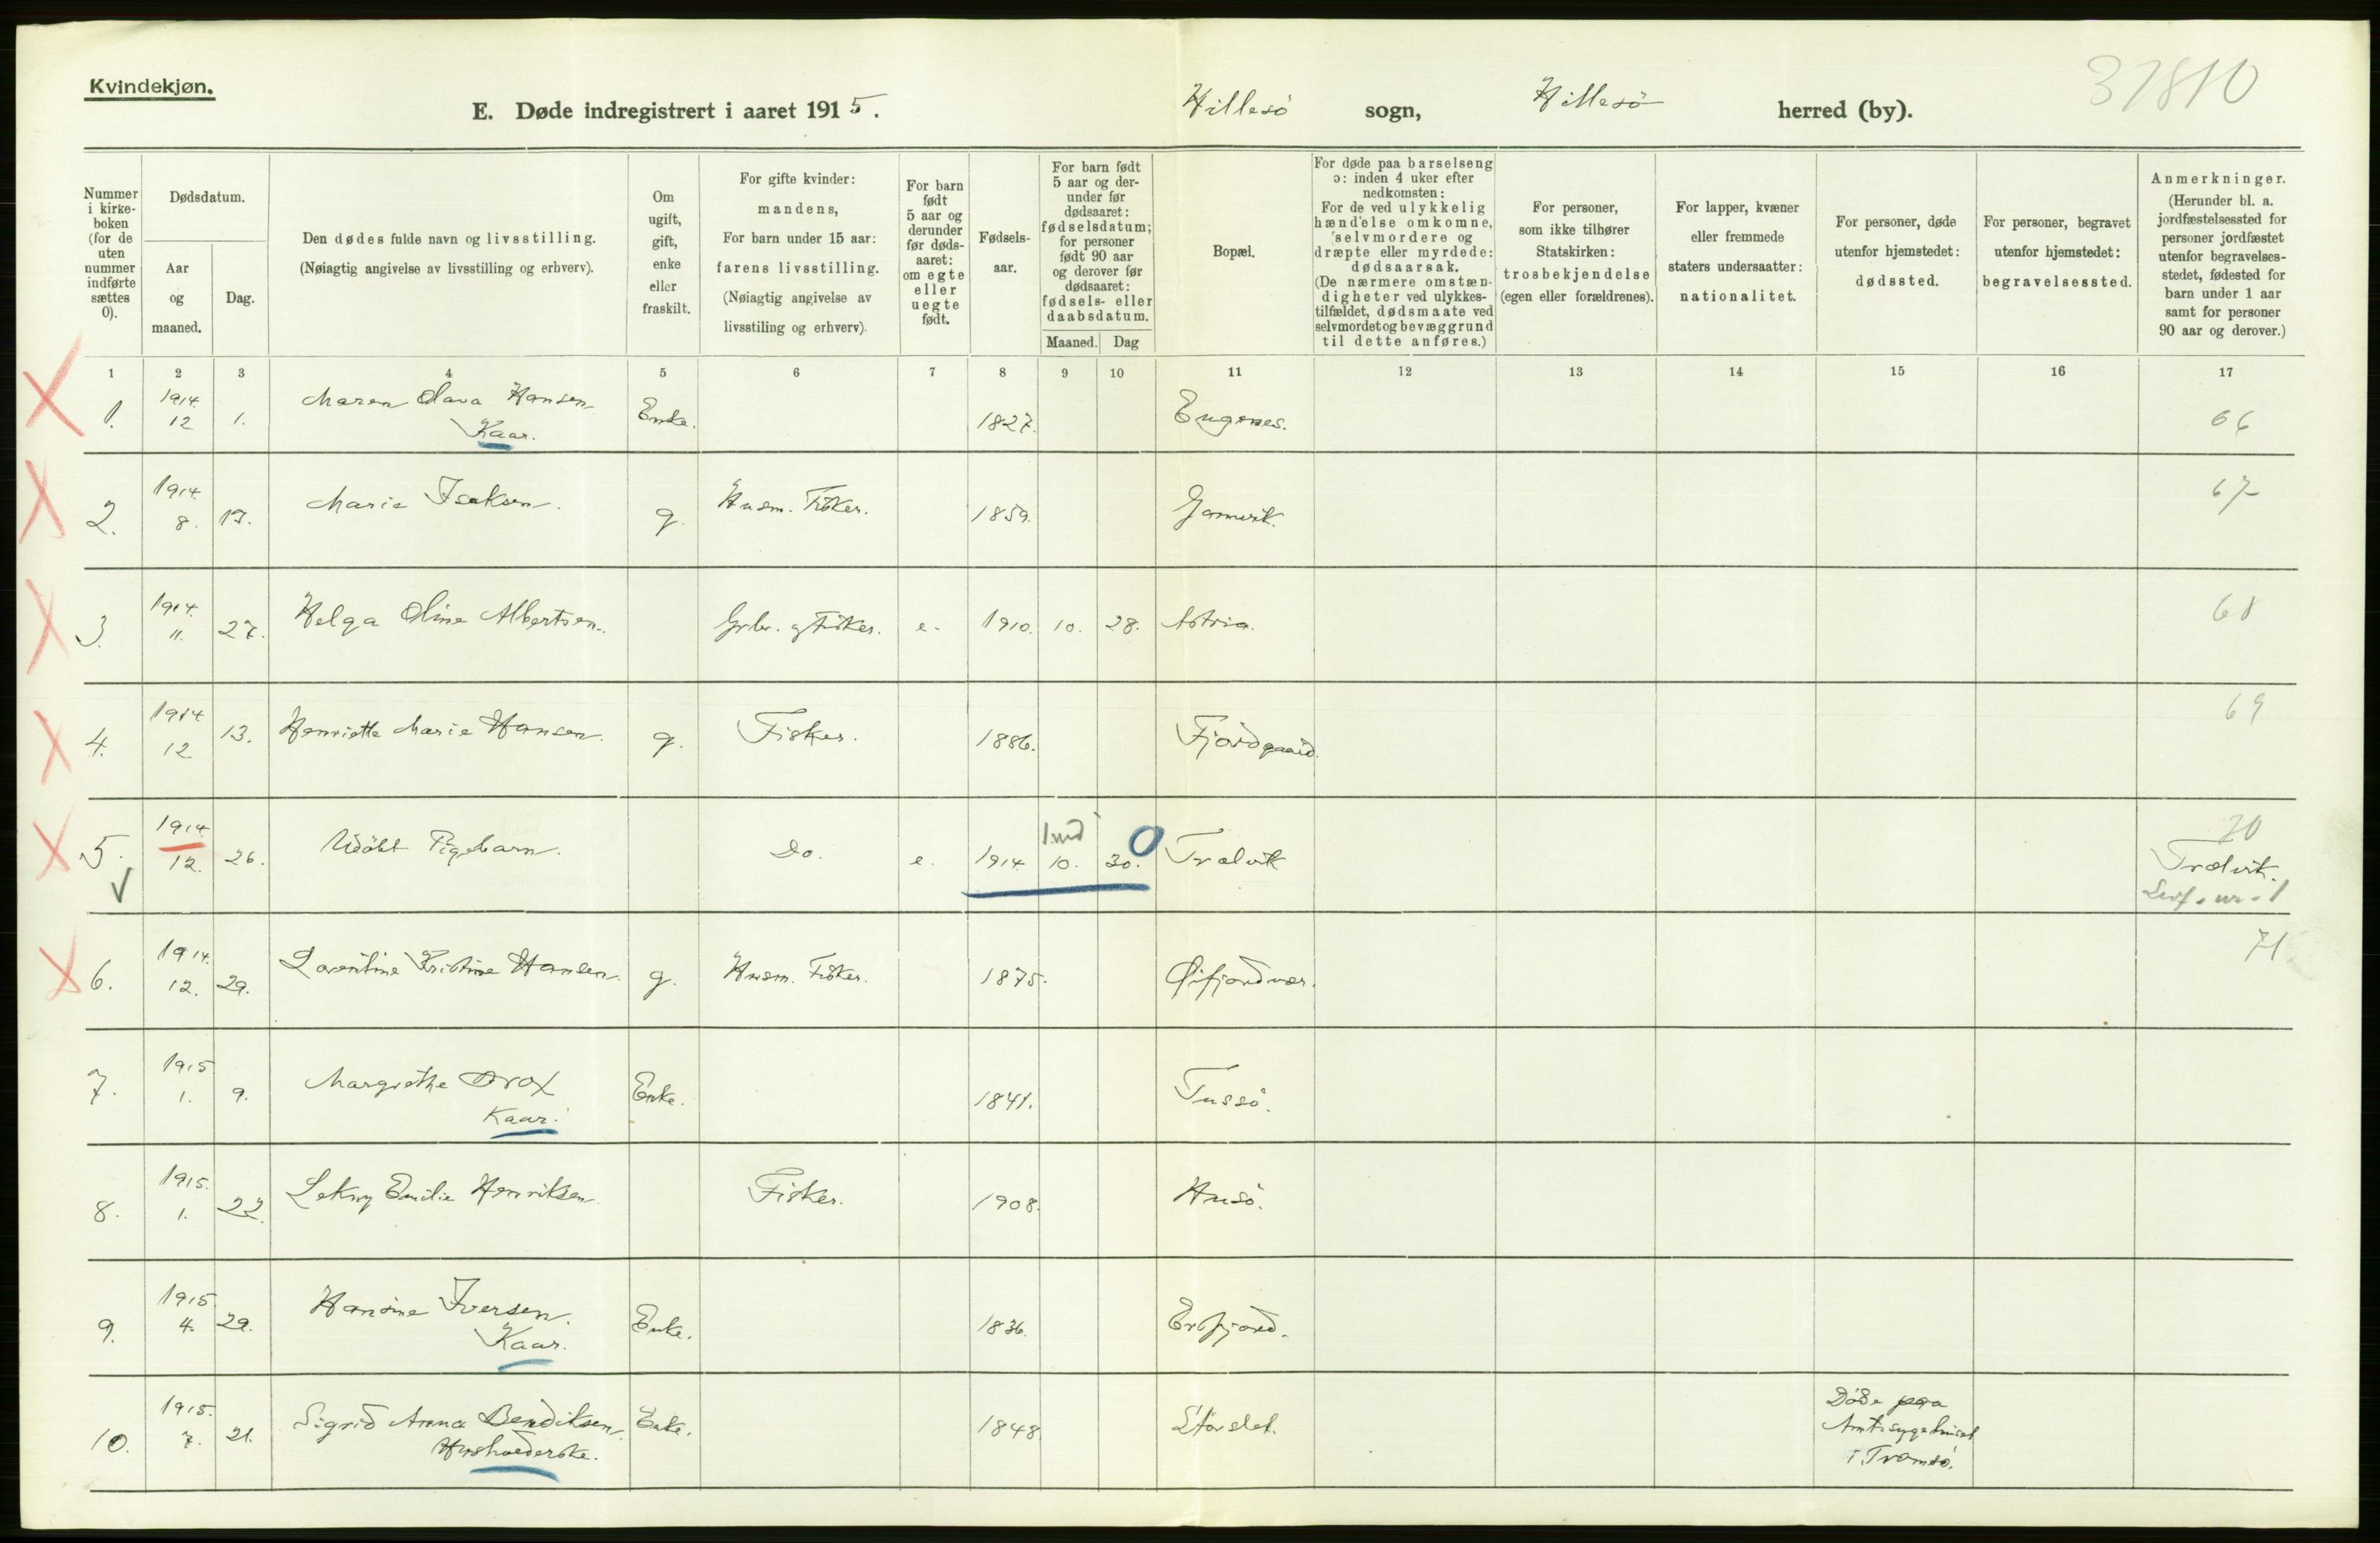 Kvindekjøn.
E. Døde indregistrert i aaret 1915.
Hillesö sogn, Hillesö herred (by).
31810
Nummer i kirkeboken (for de uten nummer indførte sættes 0).
Dødsdatum.
Aar og maaned.
Dag.
Den dødes fulde navn og livsstilling.
(Nøiagtig angivelse av livsstilling og erhverv).
Om ugift, gift, enke eller fraskilt.
For gifte kvinder: mandens,
For barn under 15 aar: farens livsstilling.
(Nøiagtig angivelse av livsstiling og erhverv).
For barn født 5 aar og derunder før dødsaaret: om egte eller uegte født.
Fødselsaar.
For barn født 5 aar og derunder før dødsaaret: fødselsdatum; for personer født 90 aar og derover før dødsaaret: fødsels- eller daabsdatum.
Maaned. Dag
Bopæl.
For døde paa barselseng ɔ: inden 4 uker efter nedkomsten:
For de ved ulykkelig hændelse omkomne, selvmordere og dræpte eller myrdede: dødsaarsak.
(De nærmere omstændigheter ved ulykkestilfældet, dødsmaate ved selvmordet og bevæggrund til dette anføres.)
For personer, som ikke tilhører Statskirken: trosbekjendelse (egen eller forældrenes).
For lapper, kvæner eller fremmede staters undersaatter: nationalitet.
For personer, døde utenfor hjemstedet: dødssted.
For personer, begravet utenfor hjemstedet: begravelsessted.
Anmerkninger.
(Herunder bl. a. jordfæstelsessted for personer jordfæstet utenfor begravelsesstedet, fødested for barn under 1 aar samt for personer 90 aar og derover.)
1 2 3 4 5 6 7 8 9 10 11 12 13 14 15 16 17
1. 1914. 12 1. Maren Olava Hansen Enke. 1827. 66
Kaar.
2. 1914. 8. Marie Isaksen. g. Husm. Fisker. 1859. 67
3. 1914. 11. 27. Helga Oline Albertsen. Grbr. og Fisker. e. 1910. 10. 28. 68
4. 1914 12 13. Henriette Marie Hansen. g. Fisker. 1886. Fjordgaard. 69
5. 1914. 12. 26. Udöbt Pigebarn. Do. e. 1914. 10. 30. Trælvik 70
1 md 0
Trælvik.
6. 1914. 12. 29. Laventine Kristine Hansen. g. Husm. Fisker. 1875. Øifjordvær. 71
7. 1915 1. 9. Margrethe Brox Enke. 1841. Tussö.
Kaar.
8. 1915. 1. 22. Emilie Henriksen. Fisker. 1908. Husö.
9. 1915 4. 29. Hansine Iversen. Enke. 1836. Ersfjord.
Kaar.
10. 1915. 7. 21. Sigrid Anna Bendiksen. Enke. 1848. Storslet.
Husholderske.
Döde paa
Amtssygehuset
i Tromsö.